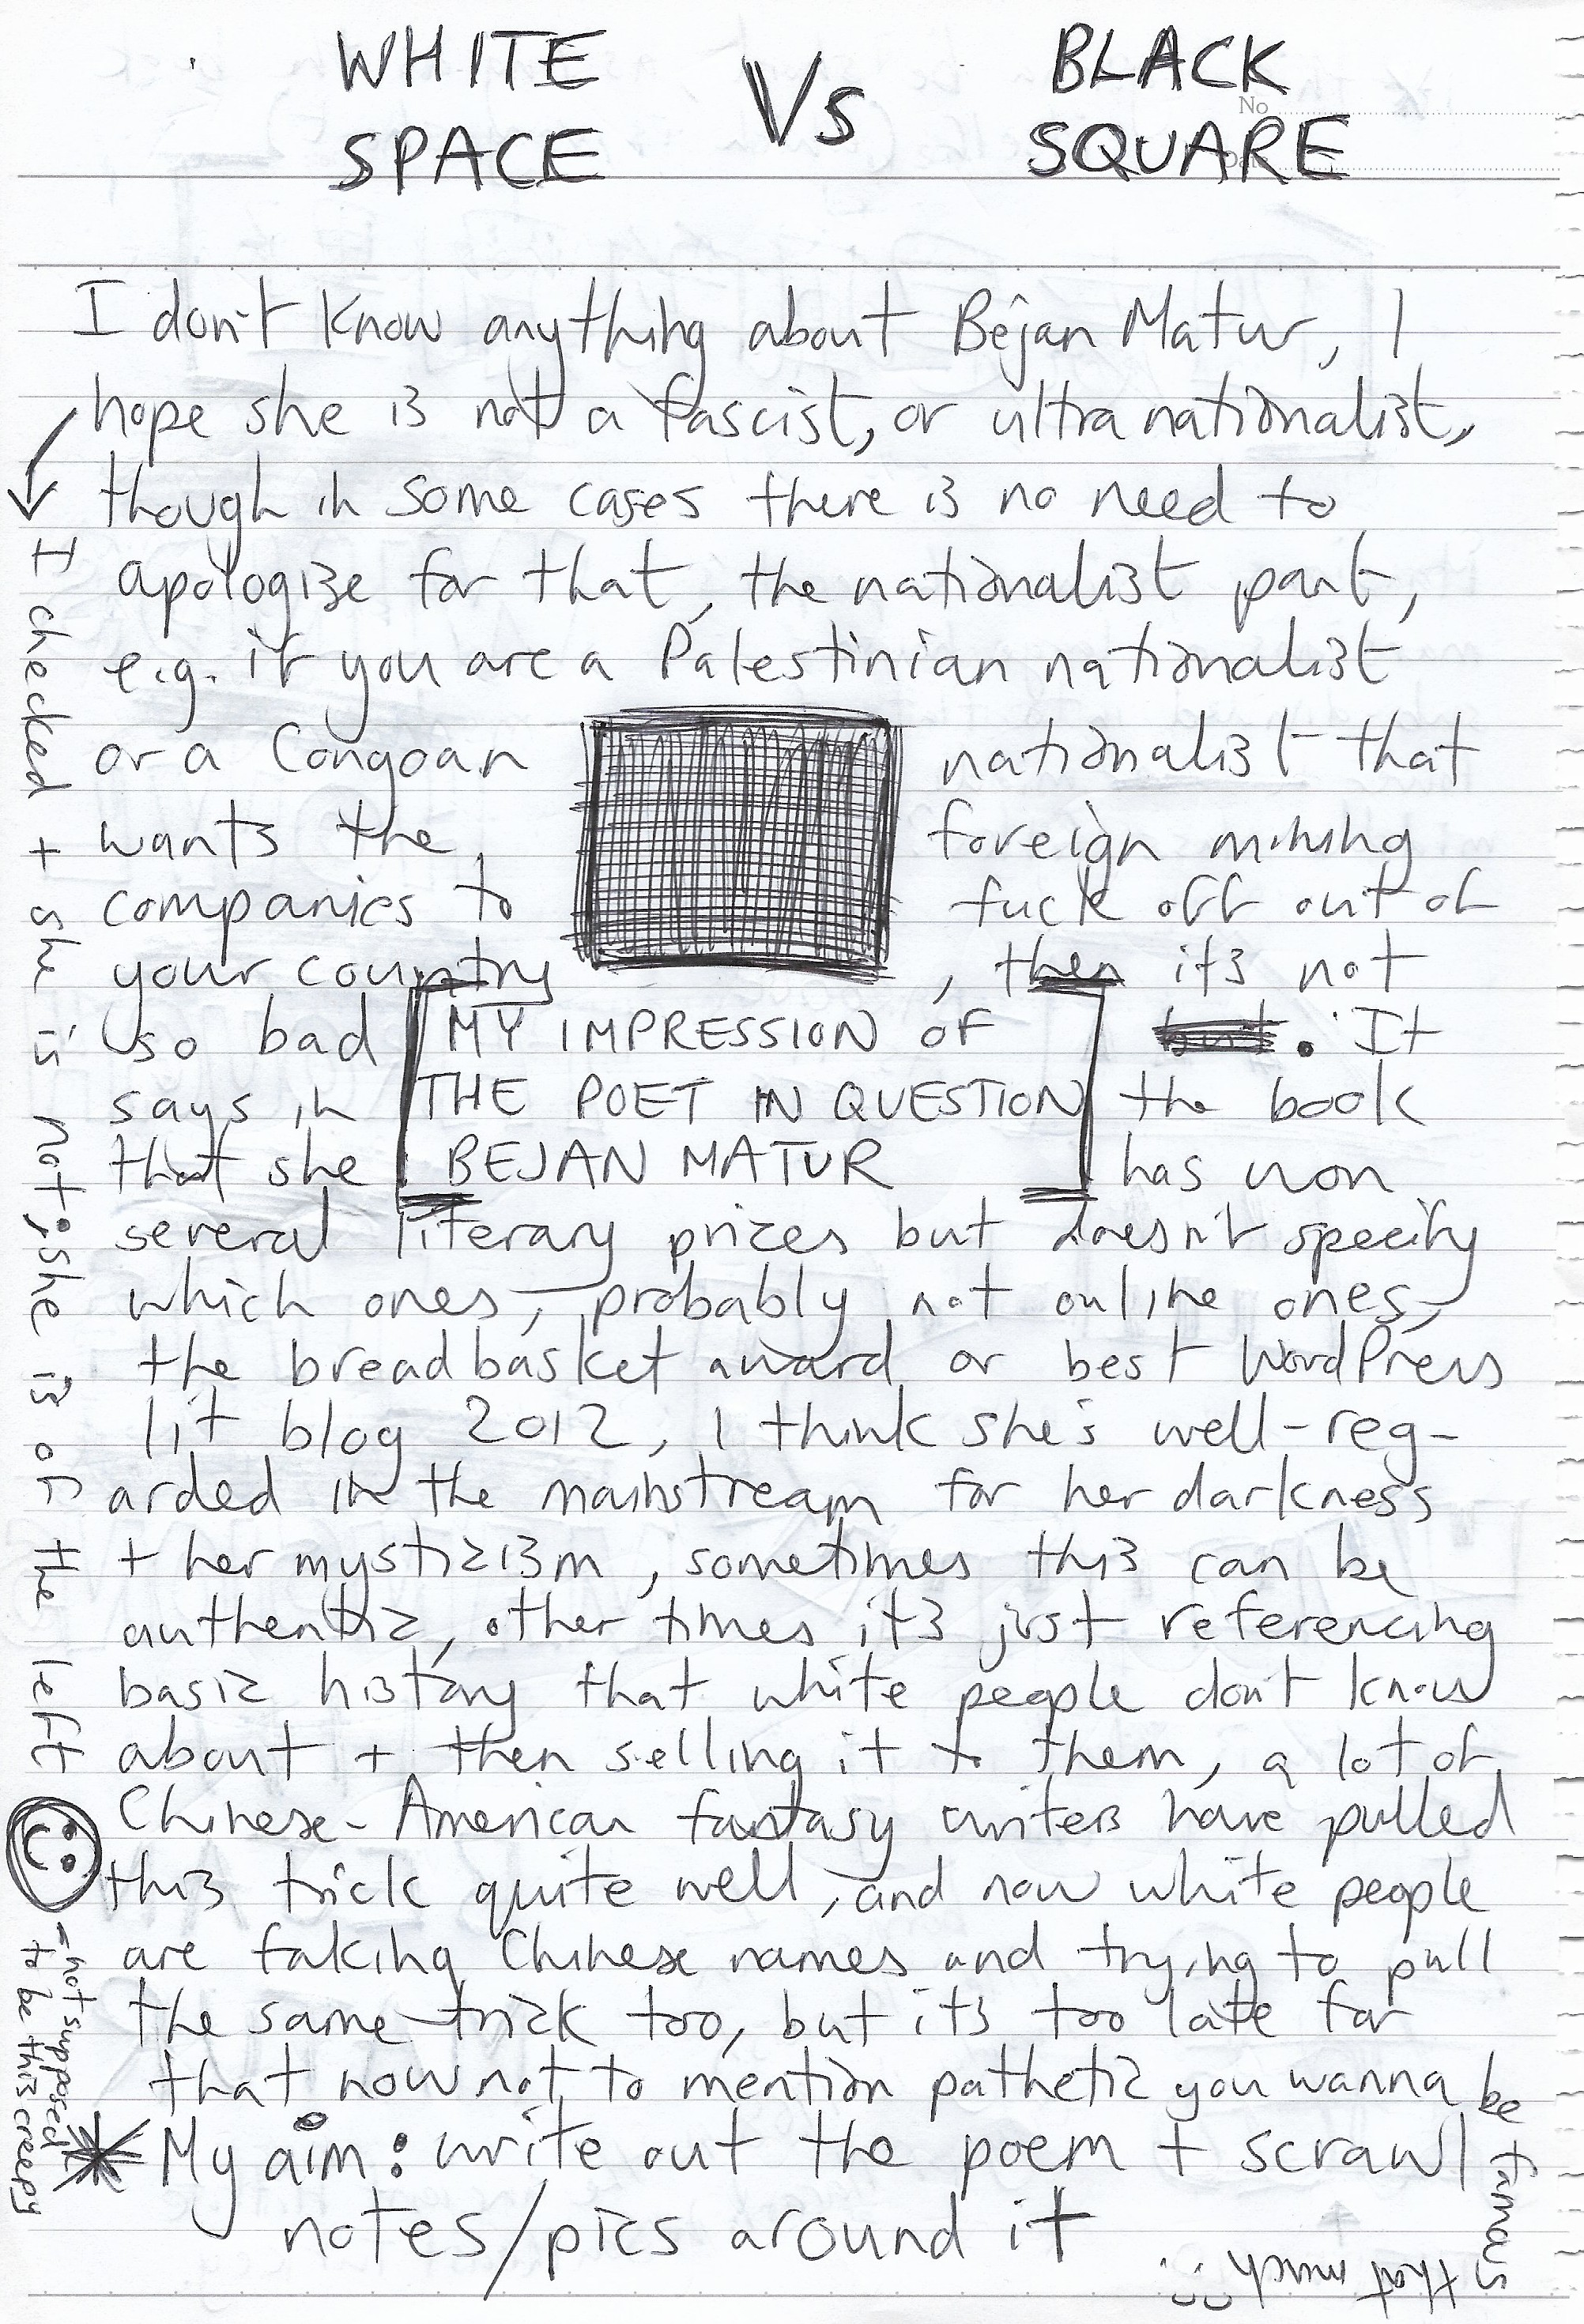 WHITE SPACE Vs BLACK SQUARE
No
I don't know anything about Bejan Matur, I
hope she is not a fascist, or ultranationalist,
though in some cases there is no need to
apologize for that, the nationalist part,
e.g. if you are a Palestinian nationalist
or a Congoan nationalist that
wants the foreign mining
companies to fuck off out of
your country, then it's not
so bad but. It
says in the book
that she has won
MY IMPRESSION OF
THE POET IN QUESTION
BEJAN MATUR
several literary prizes but doesn't specify
which ones, probably not online ones,
the breadbasket award or best WordPress
lit blog 2012, I think she's well-reg-
arded in the mainstream for her darkness
+ her mysticism, sometimes this can be
authentic, other times it's just referencing
basic history that white people don't know
about + then selling it to them, a lot of
Chinese-American fantasy writers have pulled
this trick quite well, and now white people
are faking Chinese names and trying to pull
the same trick too, but it's too late for
that now not to mention pathetic you wanna be
famous
that much
* My aim: write out the poem + scrawl
notes/pics around it
I checked + she is not; she is of the left
- not supposed
to be this creepy